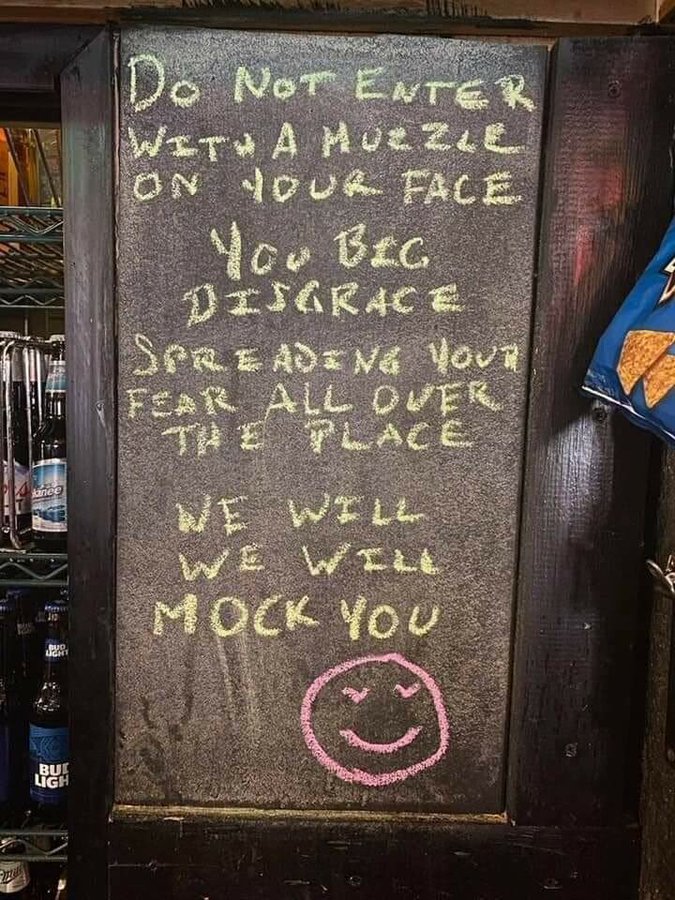 DO NOT ENTER
WITH A MUZZLE
ON YOUR FACE
YOU BIG
DISGRACE
SPREADING YOUR
FEAR ALL OVER
THE PLACE
WE WILL
WE WILL
MOCK YOU
BUD
LIGHT
BUD
LIGH